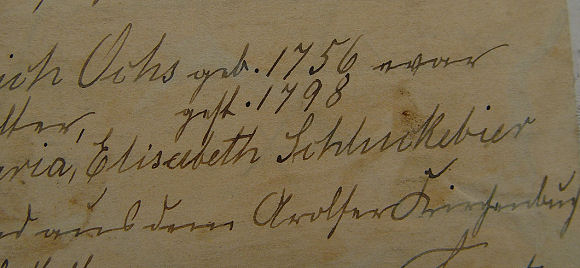 ich Ochs geb. 1756 war
lter, gest. 1798
aria, Elisabeth Schluckebier
nd aus dem Arolser Kirchenbuch